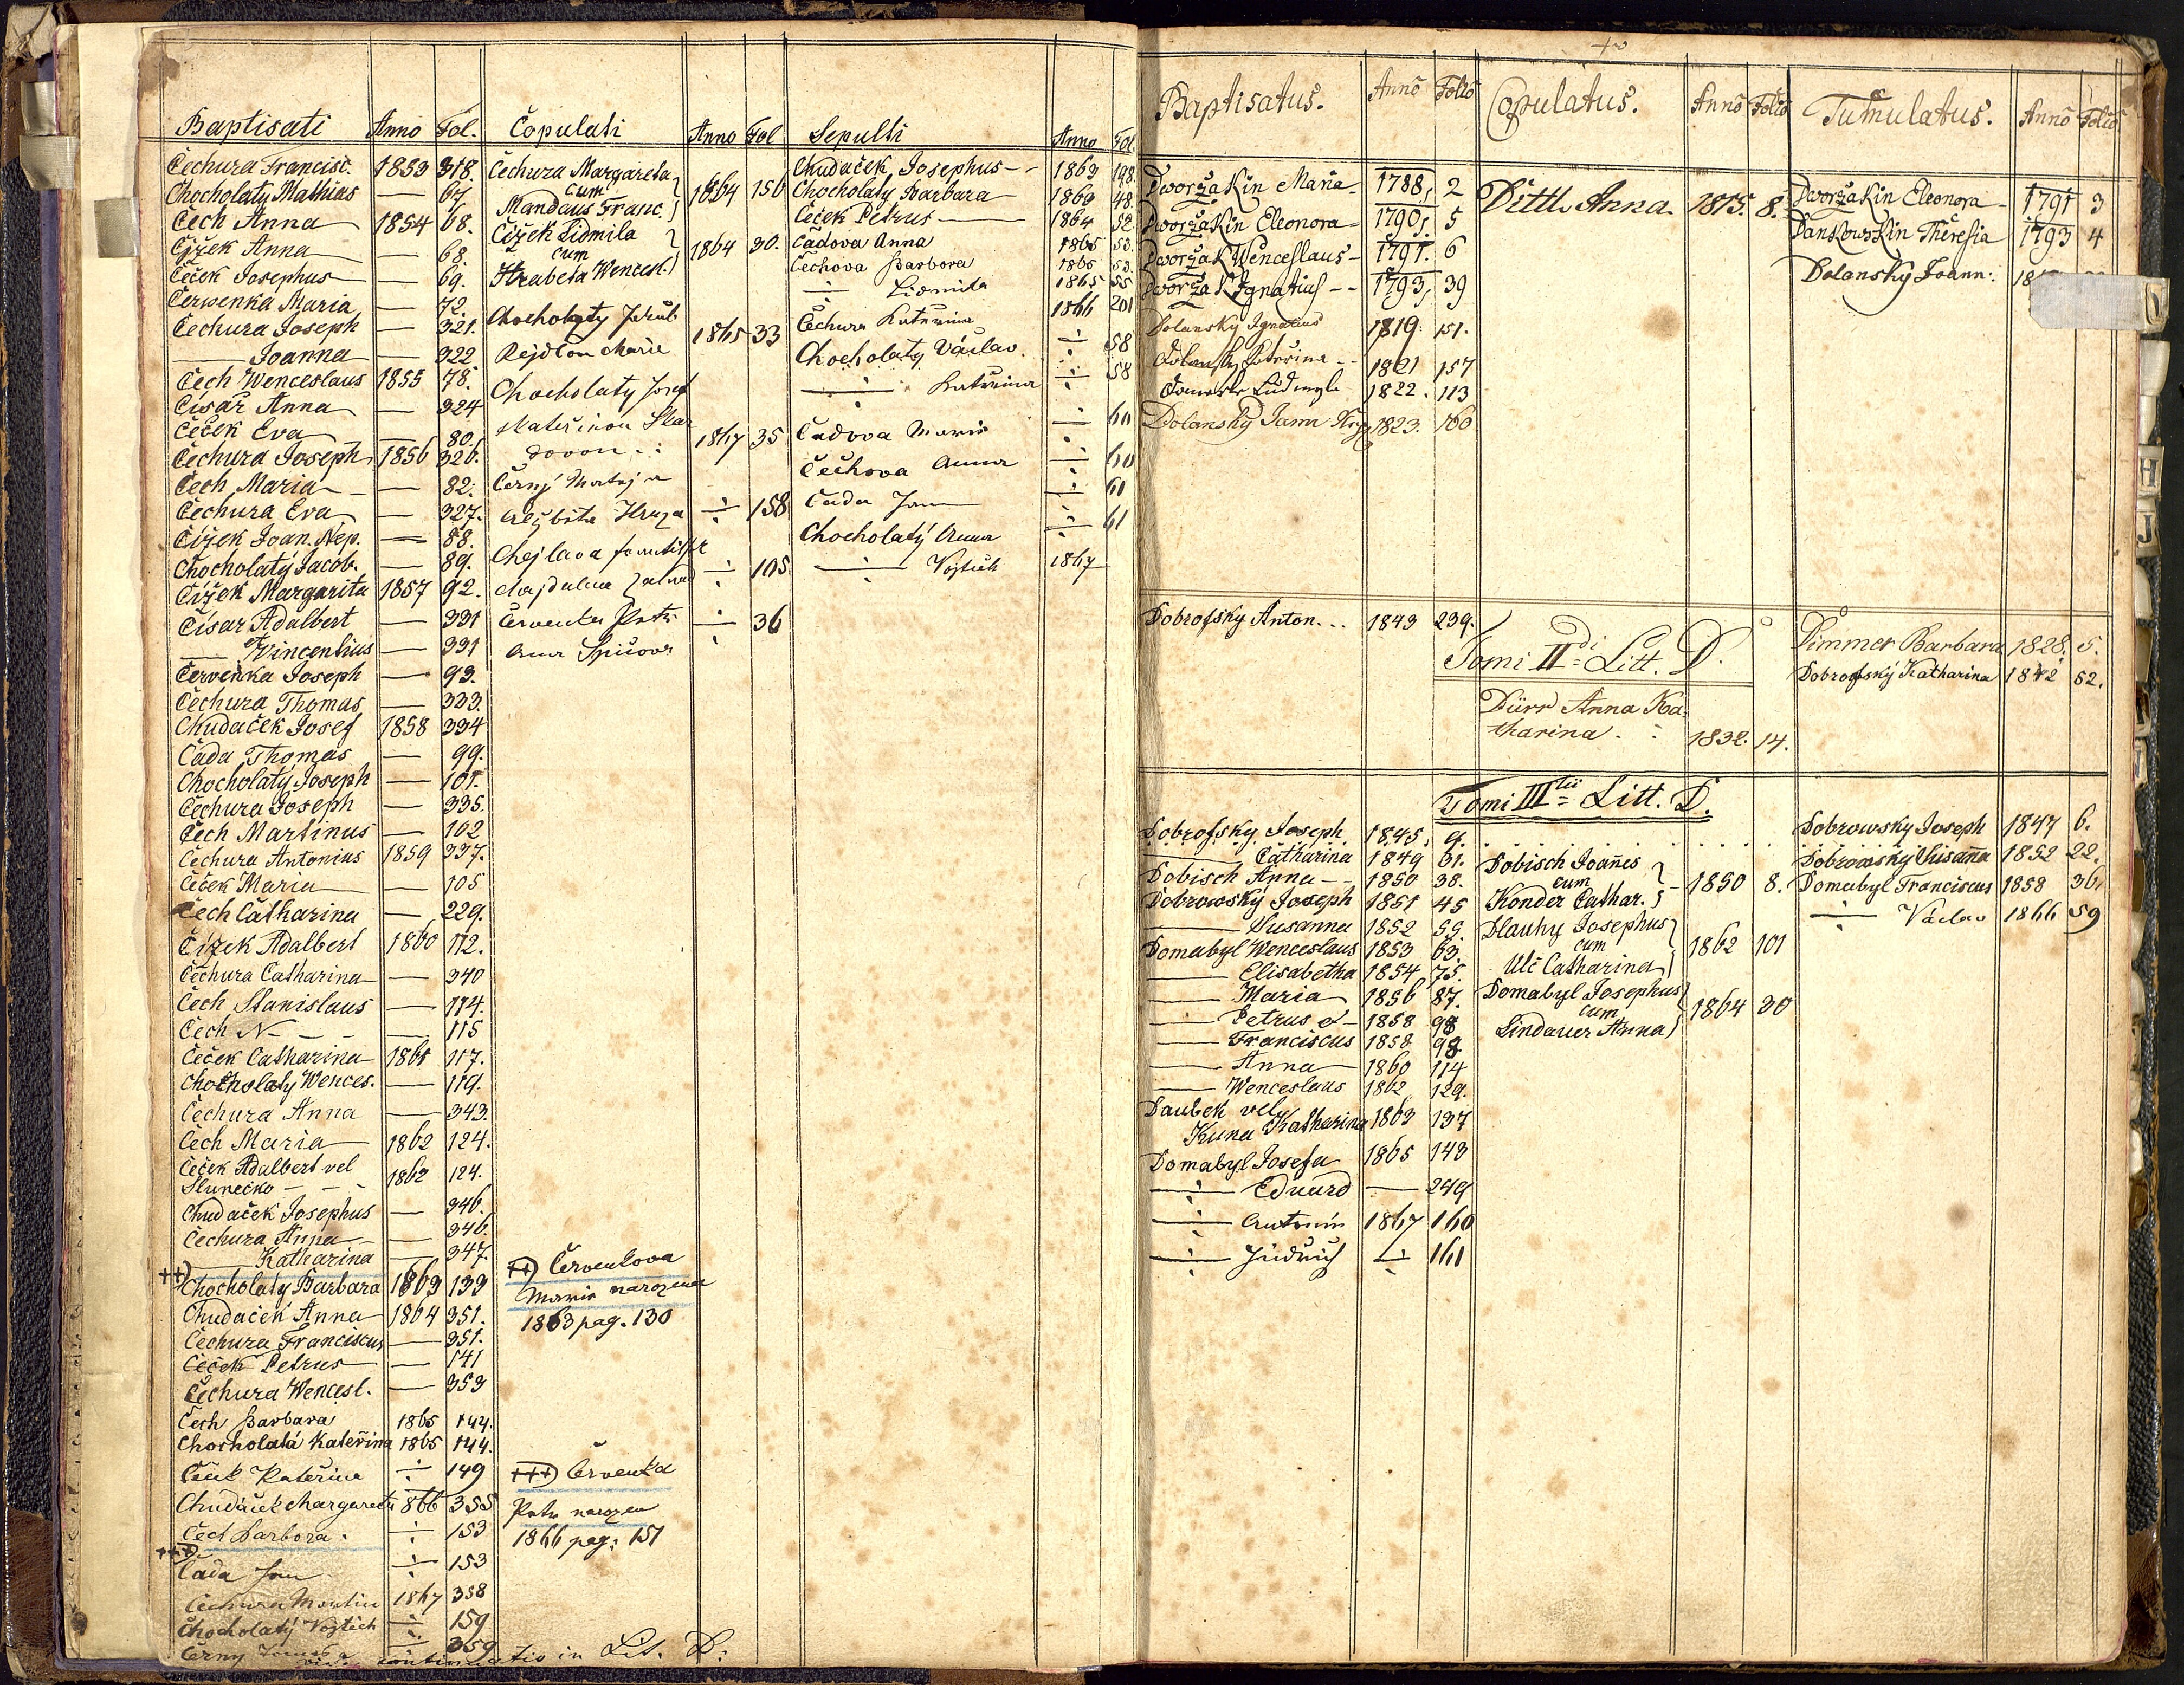 Baptisati Anno Fol.
Čechura Francisc. 1853 318.
Chocholaty Mathias — 67
Čech Anna 1854 68.
Čjžek Anna — 68.
Čeček Josephus — 69.
Červenka Maria — 72.
Čechura Joseph — 321.
— Joanna — 322
Čech Wenceslaus 1855 78.
Císař Anna — 324
Čeček Eva — 80.
Čechura Joseph 1856 326.
Čech Maria — 82.
Čechura Eva — 327.
Čížek Joan. Nep. — 88.
Chocholatý Jacob. — 89.
Čížek Margarita 1857 92.
Čísar Adalbert — 331
— Vincentius — 331
Červenka Joseph — 93.
Čechura Thomas — 333.
Chudaček Josef 1858 334
Čada Thomas — 99.
Chocholatý Joseph — 101.
Čechura Joseph — 335.
Čech Martinus — 102
Čechura Antonius 1859 337.
Čeček Maria — 105
Čech Catharina — 229.
Čížek Adalbert 1860 112.
Čechura Catharina — 340
Čech Stanislaus — 114.
Čech N — — 115
Čeček Catharina 1861 117.
Chocholaty Wences. — 119.
Čechura Anna — 343.
Čech Maria 1862 124.
Čeček Adalbert vel
Slunečko - - - 1862 124.
Chudaček Josephus — 346.
Čechura Anna — 346.
— Katharina — 347.
++)
Chocholatý Barbara 1863 139
Chudaček Anna 1864 351.
Čechura Franciscus — 351.
Čeček Petrus — 141
Čechura Wencesl. — 353
Čech Barbara 1865 144.
Chocholatá Kateřina 1865 144.
Kateřina ÷ 149
1866 355
Čech Barbora. ÷ 153
+++)
Čada Jan ÷ 153
Čechura Martin 1867 358
Chocholatý Vojtěch ÷ 159
Černy ÷ 359
continuatio in Lit. D:
Copulati Anno Fol
Čechura Margareta
cum 1864 156
Mandaus Franc.
Čížek Lidmila
cum 1864 30.
Hrabeta Wencesl.
Chocholaty Jakub
Rejdlou Marie 1865 33
Chocholaty Josef
Kateřinou 1867 35
Černý Matěj a
÷ 158
÷ 105
Petr ÷ 36
++) Červenkova
Marie narozena
1863 pag. 130
+++) Červenka
Petr narozen
1866 pag. 151
Sepulti Anno Fol.
Chudaček Josephus - - 1863 198
Chocholatý Barbara 1863 48.
Čeček Petrus — 1864 52.
Čadova Anna 1865 53.
Čechova Barbora 1865 53.
÷ Lidmila 1865 55
Čechura Kateřina 1866 201
Chocholatý Václav. ÷ 58
÷ Kateřina ÷ 58
Čadova Marie ÷ 60
Čechova Anna ÷ 60
Čada Jan ÷ 60
Chocholatý Anna ÷ 61
÷ Vojtěch 1867
Baptisatus. Anno Folio
Dworžakin Maria - 1788, 2
Dworžakin Eleonora - 1790, 5
Dworžak Wenceslaus - 1791. 6
Dworžak Ignatius - - 1793, 39
Dolanský Ignatius 1819. 151.
Dolansky Kateřina - - 1821 157
Ludmyla 1822. 113
Dolanský 1823. 160
Dobrofsky Anton... 1843 239.
Copulatus. Anno Folio
Dittl Anna. 1815. 8.
Tumulatus. Anno Folio
Dworžakin Eleonora - 1791 3
Dankowskin Theresia 1793 4
Dolanský Joann: 18
Tomi II di = Litt. D.
Dürr Anna Ka-
tharina. 1832. 14.
Dimmer Barbara 1828. 5.
Dobrofský Katharina 1842 52.
Tomi III tii = Litt. D.
Dobrofsky Joseph 1845. 9.
— Catharina 1849 31.
Dobisch Anna - - 1850 38.
Dobrowsky Joseph 1851 45
— Susanna 1852 55.
Domabyl Wenceslaus 1853 63.
— Elisabetha 1854 75.
— Maria 1856 87.
— Petrus & - 1858 98
— Franciscus 1858 98.
— Anna 1860 114
— Wenceslaus 1862 129.
Daubek vel
Kuna Katharina 1863 137
Domabyl Josefa 1865 143
÷ Eduard — 249
÷ Antonín 1867 160
÷ Jindřich ÷ 161
Dobisch Joannes
cum - 1850 8.
Konder Cathar.
Dlauhy Josephus
cum 1862 101
Ulč Catharina
Domabyl Josephus
cum 1864 30
Lindauer Anna
Dobrowsky Joseph 1847 6.
Dobrowský Susanna 1852 22.
Domabyl Franciscus 1858 36.
÷ Václav 1866 59
H
J